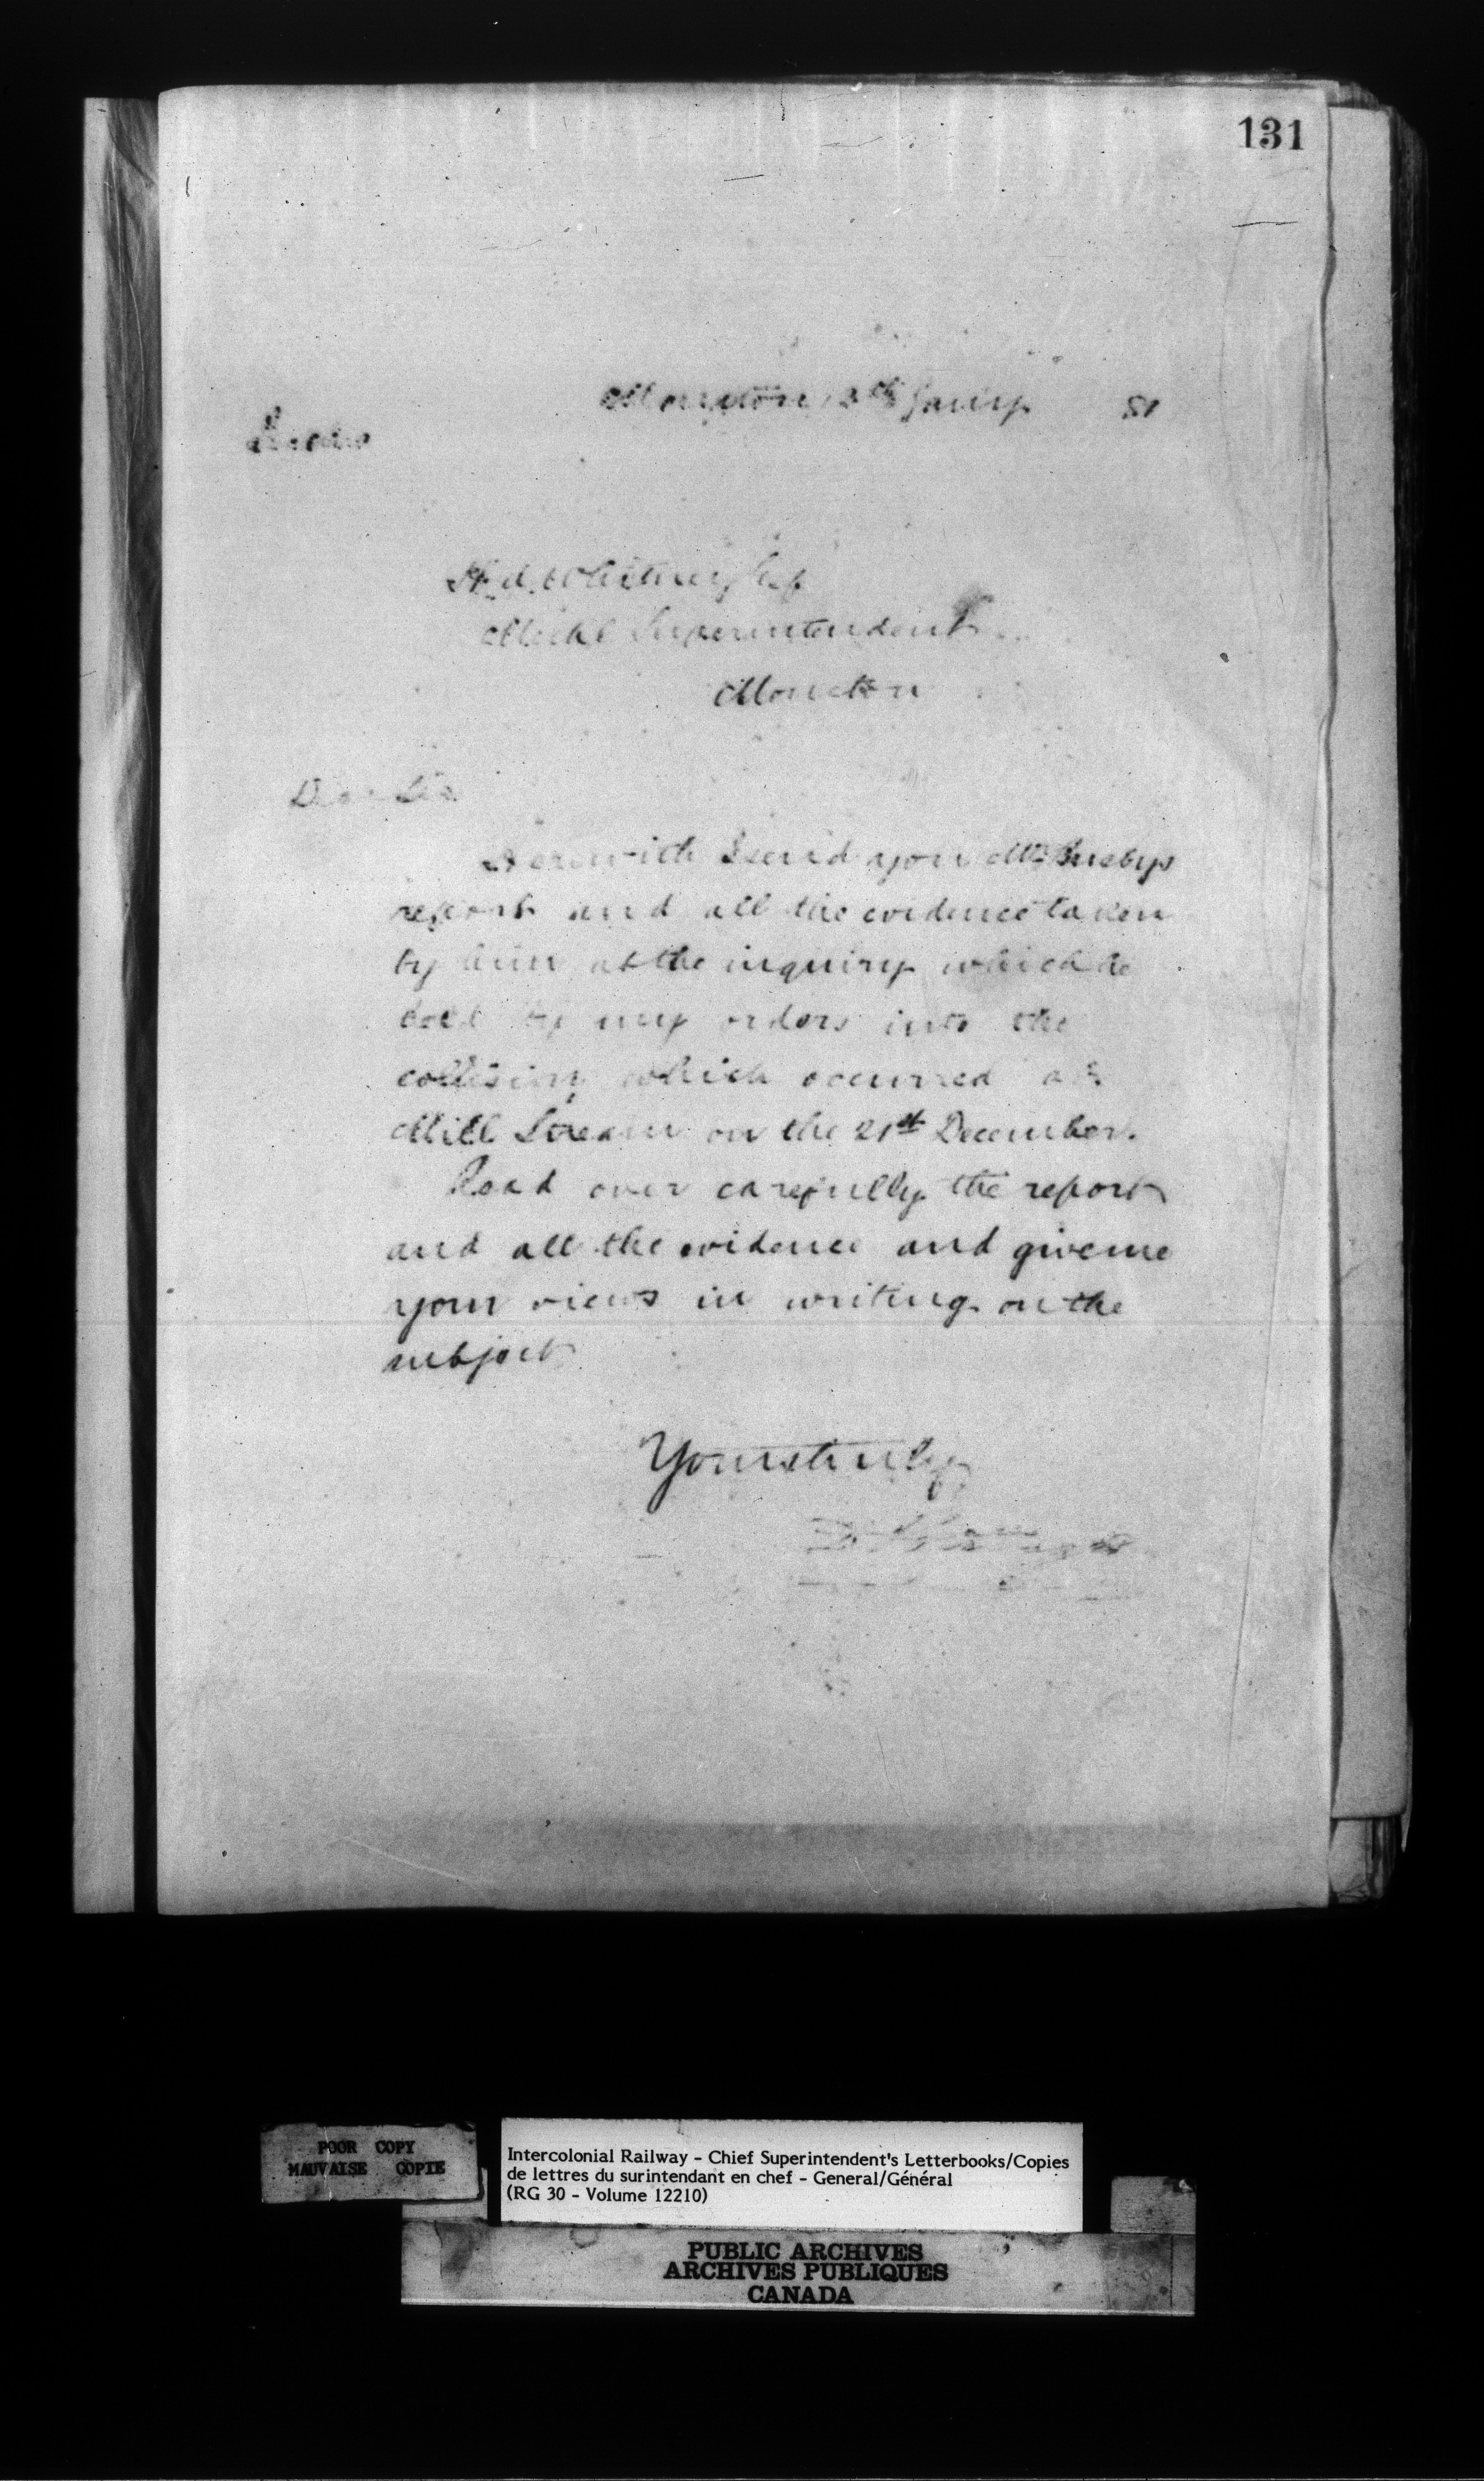 131
Moncton 13th Jany 81
H. A. Whitney Esq
Mechl Superintendent
Moncton
Dear Sir
Herewith I send you Mr Busbys
report and all the evidence taken
by him at the inquiry which he
held by my orders into the
collision which occurred at
Mill Stream on the 21st December.
Read over carefully the report
and all the evidence and give me
your views in writing on the
subject
Yours truly
POOR COPY
MAUVAISE COPIE
Intercolonial Railway - Chief Superintendent's Letterbooks/Copies
de lettres du surintendant en chef - General/Général
(RG 30 - Volume 12210)
PUBLIC ARCHIVES
ARCHIVES PUBLIQUES
CANADA